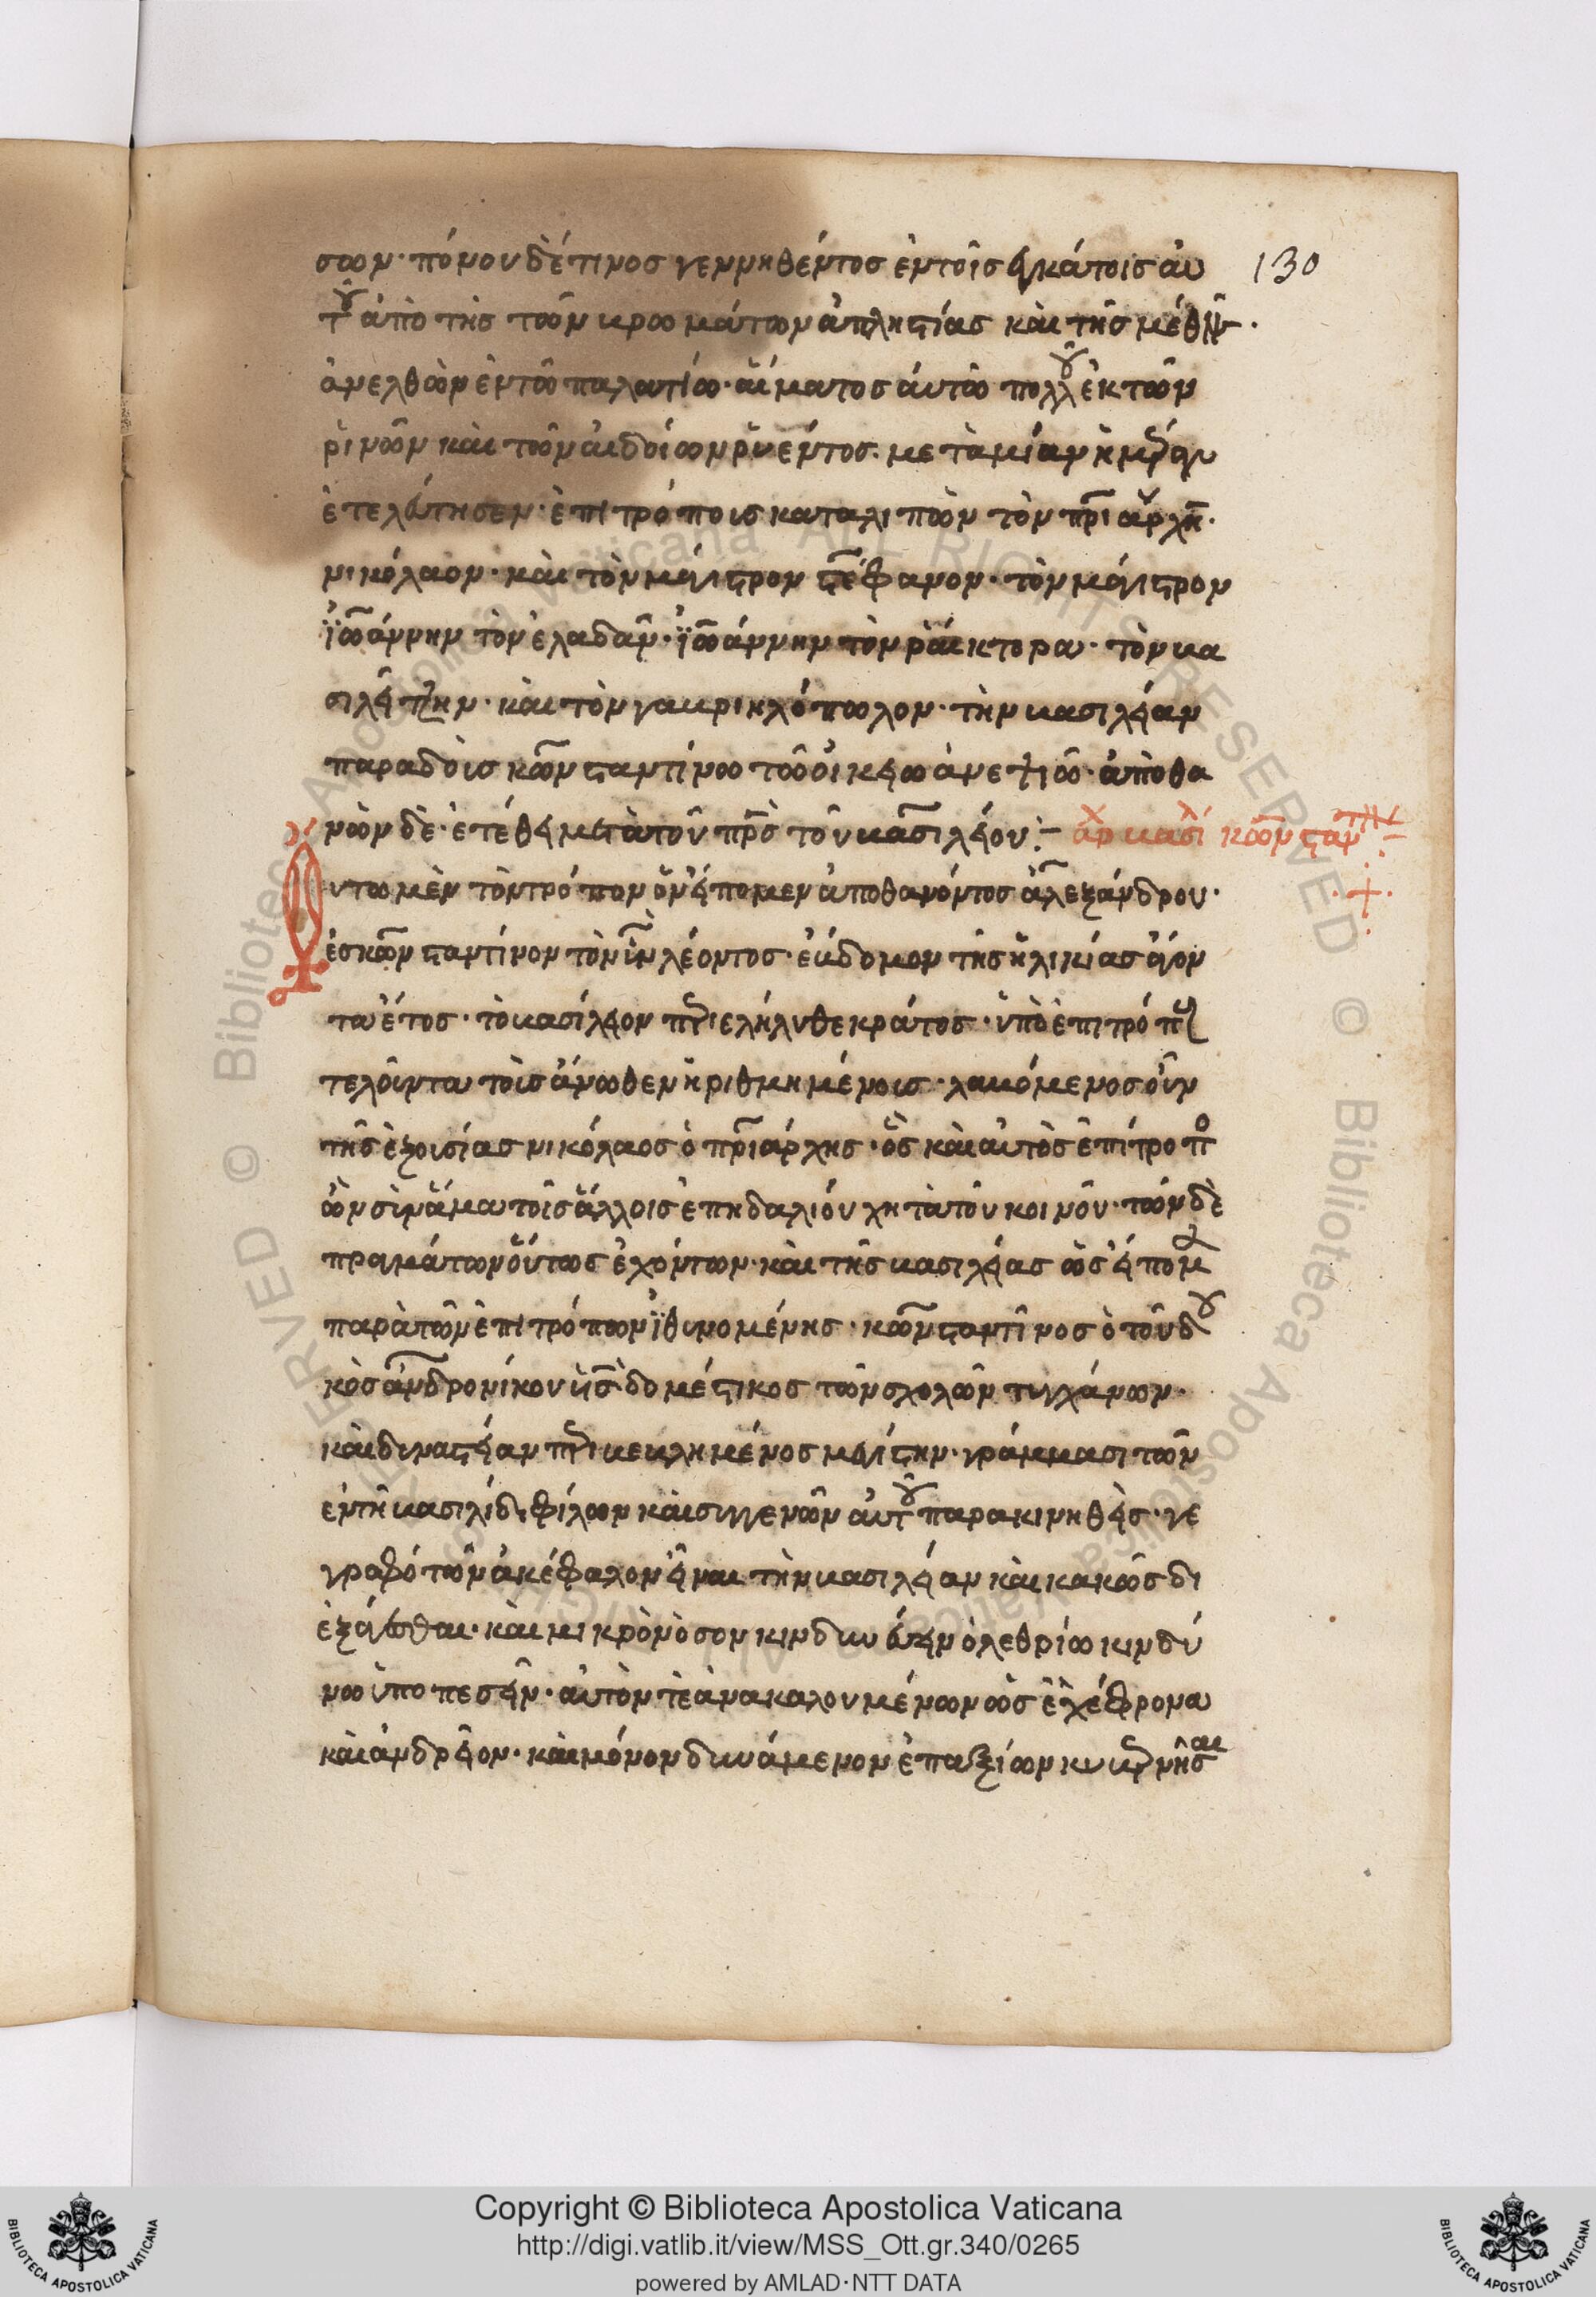 σσων· πόνου δέ τινος γεννηθέντος ἐν τοῖς ἐγκάτοις αὐ 130
τοῦ ἀπὸ τῆς τῶν βρωμάτων ἀπληστίας καὶ τῆς μέθης·
ἀνελθὼν ἐν τῶ παλατίω· αἵματος αὐτῶ πολλοῦ ἐκ τῶν
ῥινῶν καὶ τῶν αἰδοίων ῥυέντος· μετὰ μίαν ἡμέραν
ἐτελεύτησεν· ἐπιτρόποις καταλιπὼν τὸν πριάρχην·
νικόλαον· καὶ τὸν μάγιστρον στέφανον· τὸν μάγιστρον
ἰωάννην τὸν ἐλαδᾶν· ἰωάννην τὸν ῥαίκτορα· τὸν βα
σιλείτζην· καὶ τὸν γαβριηλόπωλον· τὴν βασιλείαν
παραδοὺς κωνσταντίνω τῶ οἰκείω ἀνεψιῶ· ἀποθα
νὼν δὲ· ἐτέθει μετὰ τοῦ πρσ τοῦ βασιλείου:– ἀρχ βασι κωνσταν
οὑτω μὲν τὸν τρόπον ὃν εἴπομεν ἀποθανόντος ἀλεξάνδρου·
ἐς κωνσταντίνον τὸν υἱὸν λέοντος· ἕβδομον τῆς ἡλικίας ἄγον
τα ἔτος· τὸ βασίλειον περιελήλυθε κράτος· ὑπὸ ἐπιτρόποις
τελοῦντα τοῖς ἄνωθεν ἠριθμημένοις· λαβόμενος οὖν
τῆς ἐξουσίας νικόλαος ὁ πριάρχης· ὃς καὶ αὐτὸς ἐπίτροπος
ὢν σὺν ἅμα τοῖς ἄλλοις ἐπηδαλιούχη τὰ τοῦ κοινοῦ· τῶν δὲ
πραγμάτων οὕτως ἐχόντων· καὶ τῆς βασιλείας ὡς εἴπομεν
παρὰ τῶν ἐπιτρόπων ἰθυνομένης· κωνσταντῖνος ὁ τοῦ δου
κὸς ἀνδρονίκου υἱὸς δομέστικος τῶν σχολῶν τυγχάνων·
καὶ δυναστείαν περιβεβλημένος μεγίστην· γράμμασι τῶν
ἐν τῆ βασιλίδι φίλων καὶ συγγενῶν αὐτοῦ παρακινηθεὶς· γε
γραφότων ἀκέφαλον εἶναι τὴν βασιλείαν καὶ κακῶς δι
ἐξάγεσθαι· καὶ μικρὸν ὅσον κινδυνεύειν ὀλεθρίω κινδύ
νω ὑποπεσεῖν· αὐτὸν τε ἀνακαλουμένων ὡς ἐχέφρονα
καὶ ἀνδρεῖον· καὶ μόνον δυνάμενον ἐπαξίων κυβερνῆσαι
Copyright © Biblioteca Apostolica Vaticana
http://digi.vatlib.it/view/MSS_Ott.gr.340/0265
powered by AMLAD·NTT DATA